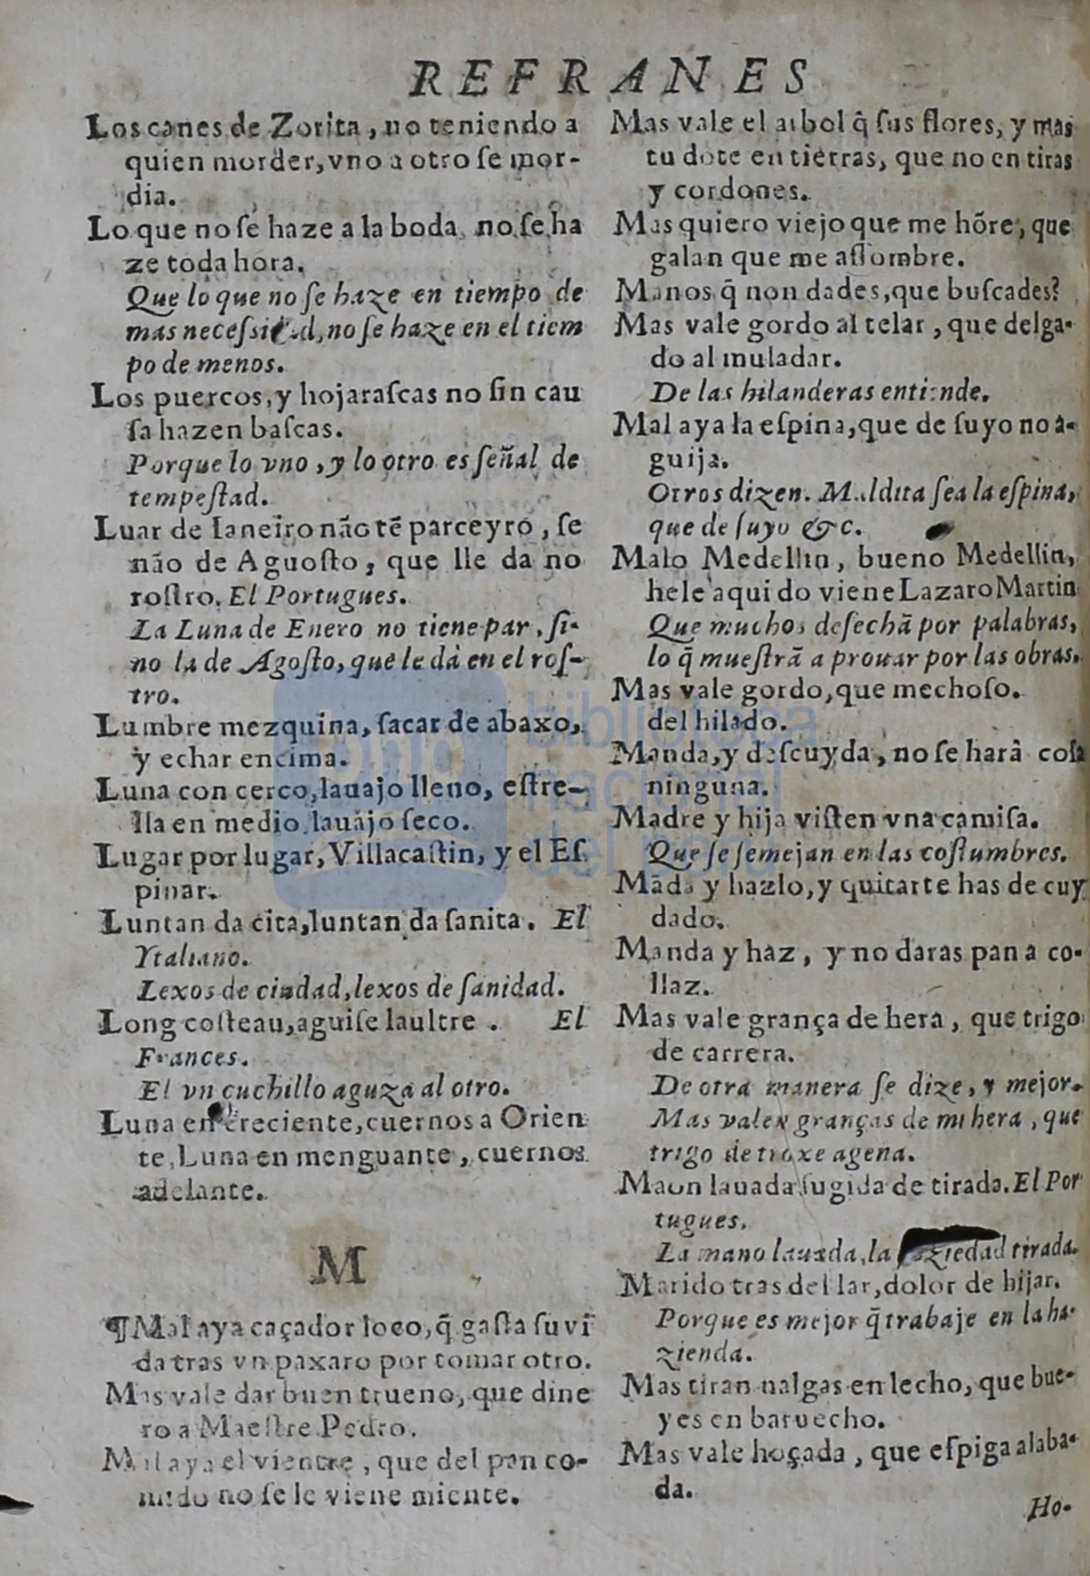 REFRANES
Los canes de Zorita, no teniendo a
quien morder, vno a otro ſe mor-
dia.
Lo que no ſe haze a la boda, no ſe ha
ze toda hora.
Que lo que no ſe haze en tiempo de
mas neceſsidad, no ſe haze en el tiem
po de menos.
Los puercos, y hojaraſcas no ſin cau
ſa hazen baſcas.
Porque lo vno, y lo otro es ſeñal de
tempeſtad.
Luar de Ianeiro não tẽ parceyro, ſe
não de Aguoſto, que lle da no
roſtro. El Portugues.
La Luna de Enero no tiene par, ſi-
no la de Agoſto, que le dà en el roſ-
tro.
Lumbre mezquina, ſacar de abaxo,
y echar encima.
Luna con cerco, lauajo lleno, eſtre-
lla en medio, lauajo ſeco.
Lugar por lugar, Villacaſtin, y el Eſ
pinar.
Luntan da cita, luntan da ſanita. El
Ytaliano.
Lexos de ciudad, lexos de ſanidad.
Long coſteau, aguiſe laultre. El
Frances.
El vn cuchillo aguza al otro.
Luna en creciente, cuernos a Orien
te, Luna en menguante, cuernos
adelante.
M
¶Mal aya caçador loco, q̃ gaſta ſu vi
da tras vn paxaro por tomar otro.
Mas vale dar buen trueno, que dine
ro a Maeſtre Pedro.
Mal aya el vientre, que del pan co-
mido no ſe le viene miente.
Mas vale el arbol q̃ ſus flores, y mas
tu dote en tierras, que no en tiras
y cordones.
Mas quiero viejo que me hõre, que
galan que me aſſombre.
Manos q̃ non dades, que buſcades?
Mas vale gordo al telar, que delga-
do al muladar.
De las hilanderas entiende.
Mal aya la eſpina, que de ſuyo no a-
guija.
Otros dizen. Maldita ſea la eſpina,
que de ſuyo &c.
Malo Medellin, bueno Medellin,
hele aqui do viene Lazaro Martin
Que muchos deſechã por palabras,
lo q̃ mueſtrã a prouar por las obras.
Mas vale gordo, que mechoſo.
del hilado.
Manda, y deſcuyda, no ſe harà coſa
ninguna.
Madre y hija viſten vna camiſa.
Que ſe ſemejan en las coſtumbres.
Mãda y hazlo, y quitarte has de cuy
dado.
Manda y haz, y no daras pan a co-
llaz.
Mas vale grança de hera, que trigo
de carrera.
De otra manera ſe dize, y mejor.
Mas valen granças de mi hera, que
trigo de troxe agena.
Maon lauada ſugida de tirada. El Por
tugues.
La mano lauada, la ſuziedad tirada.
Marido tras del lar, dolor de hijar.
Porque es mejor q̃ trabaje en la ha-
zienda.
Mas tiran nalgas en lecho, que bue-
yes en baruecho.
Mas vale hoçada, que eſpiga alaba-
da.
Ho-
biblioteca
nacional
del